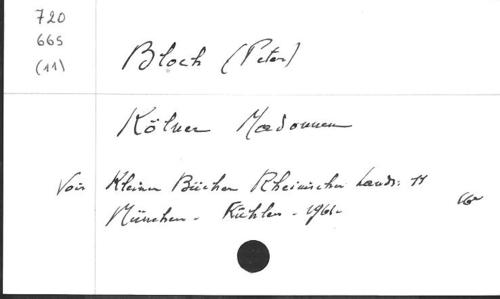 720
665
(11)
Bloch (Peter)
Kölner Madonnen
Voir Kleine Bücher Rheinischer Lands: 11
München - Kühlen - 1961-